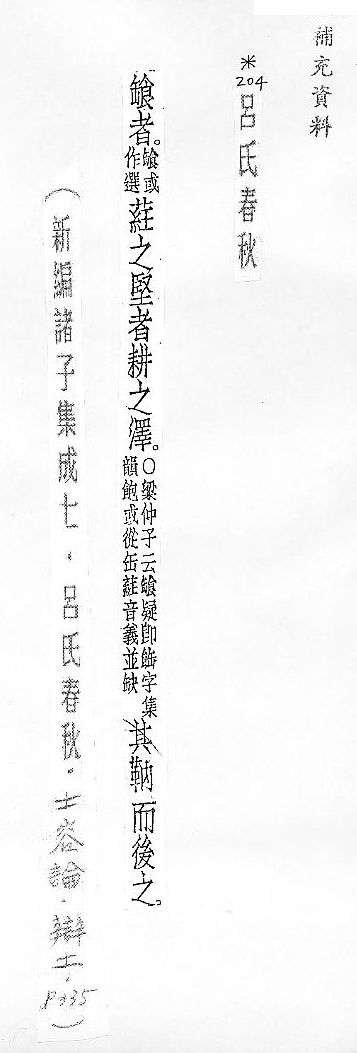 補充資料
*204
呂氏春秋
者。或作選 之堅者耕之澤。○梁仲子云疑卽字集韻飽或從缶音義並缺 其靹而後之。
（新編諸子集成七．呂氏春秋．士容論．辯土．P335）